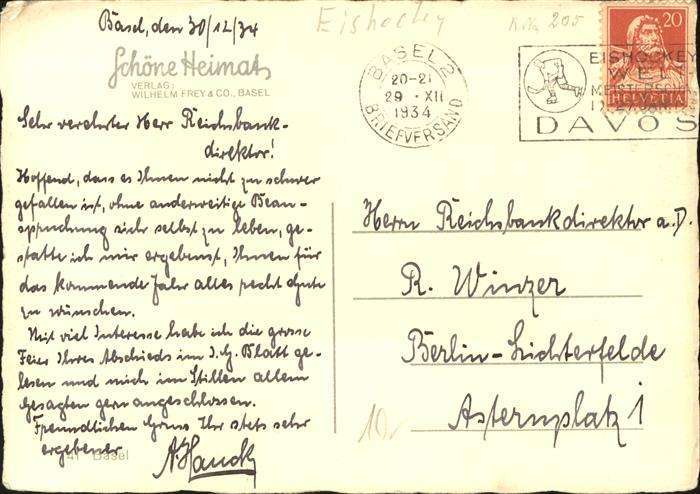 Basel, den 30/12/34
Eishockey
205
Schöne Heimat
VERLAG:
WILHELM FREY & CO., BASEL
BASEL 2
20-21
29. XII
1934
BRIEFVERSAND
EISHOCKEY
WEL
MEISTERSCH
DAVOS
20
HELVETIA
Sehr verehrter Herr Reichsbank-
direktor!
Hoffend, dass es Ihnen nicht zu schwer
gefallen ist, ohne anderweitige Bean-
spruchung sich selbst zu leben, ge-
statte ich mir ergebenst, Ihnen für
das kommende Jahr alles recht Gute
zu wünschen.
Mit viel Interesse habe ich die grosse
Feier Ihres Abschieds im I.G. Blatt ge-
lesen und mich im Stillen allem
Gesagten gern angeschlossen.
Freundlichen Gruss Ihr stets sehr
ergebener
A. Hauck
41 Basel
Herrn Reichsbankdirektor a.D.
R. Winzer
Berlin-Lichterfelde
Asternplatz 1
10.-